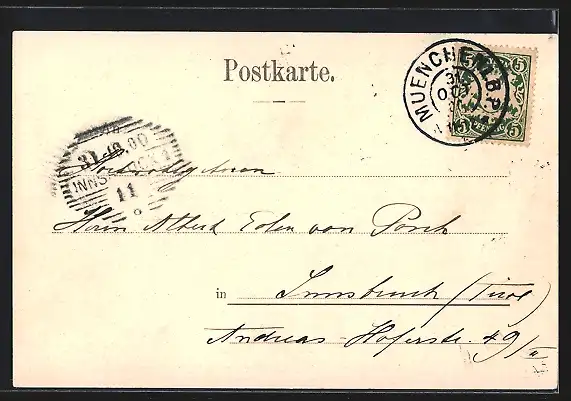 Postkarte.
MUENCHEN B.P.
31 OCT
5 5
PFENNIG
5 5
31.10.00
INNSBRUCK 1
11
Herrn Albert Edlen von Posch
in Innsbruck (Tirol)
Andreas-Hoferstr. 49/II